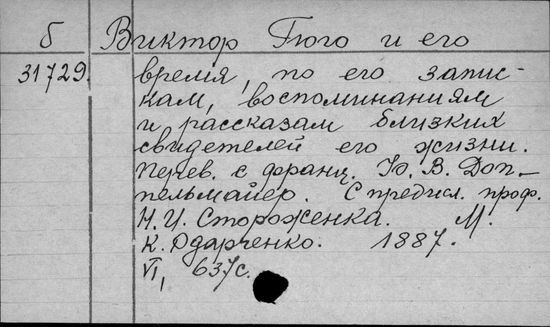 б Виктор Гюго и его
31729. время, по его запис-
кам, воспоминаниям
и рассказам близких
свидетелей его жизни.
Перев. с франц. Ю. В. Доп-
пельмайер. С предисл. проф.
Н. И. Стороженка. М.
К. Одарченко. 1887.
VI, 637с.